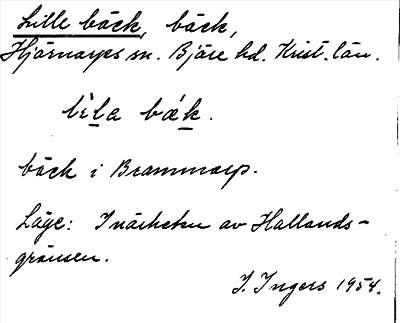 Lille bäck, bäck,
Hjärnarps sn. Bjäre hd. Krist. län.
lìla bæk.
bäck i Brammarp.
Läge: I närheten av Hallands-
gränsen.
I. Ingers 1954.